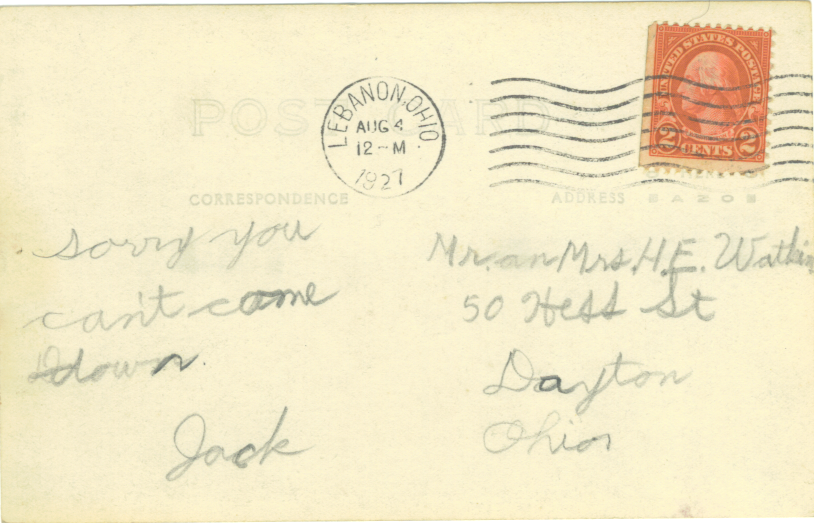 UNITED STATES POSTAGE
2 CENTS 2
LEBANON, OHIO
AUG 4
12-M
1927
POST CARD
CORRESPONDENCE
ADDRESS
sorry you
can't come
down
Jack
Mr. an Mrs. H.E. Watkin
50 Hess St
Dayton
Ohio